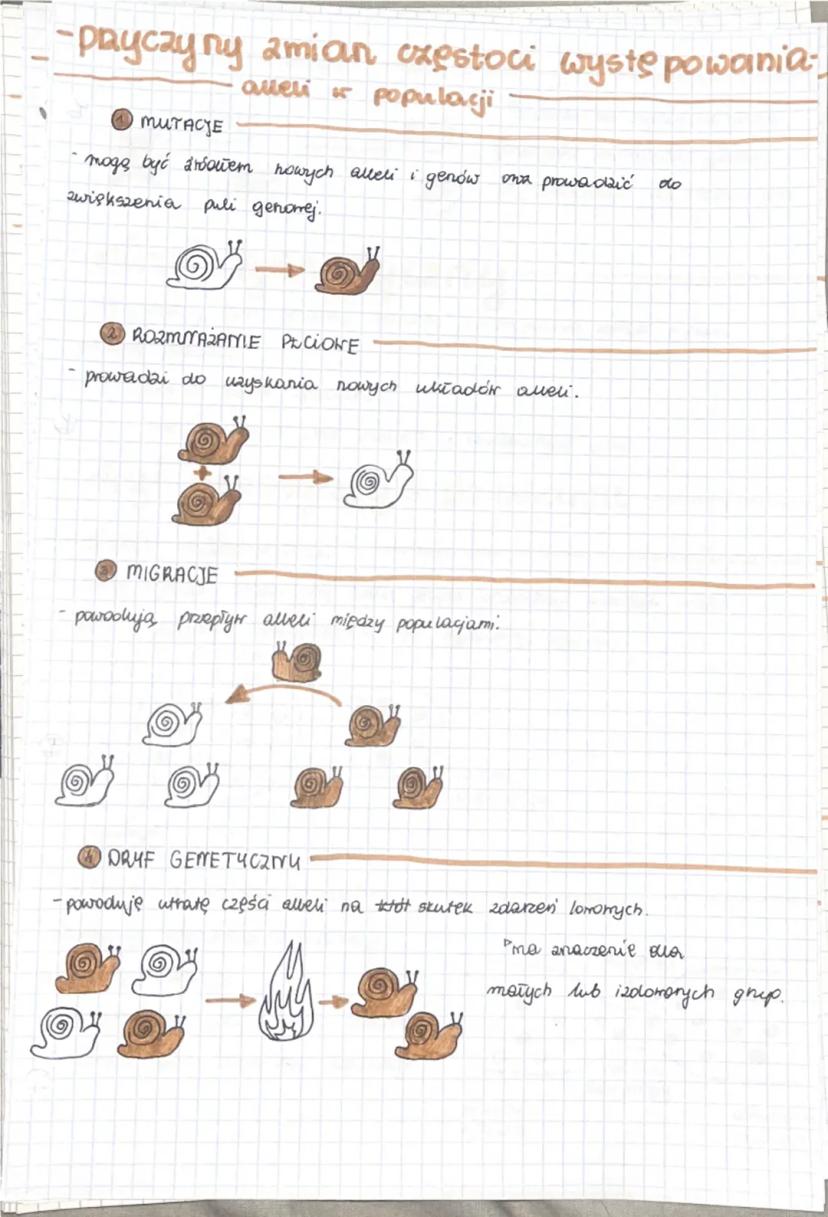 -przyczyny zmian częstoci występowania-
alleli w populacji
1 MUTACJE
- mogą być źródłem nowych alleli i genów oraz prowadzić do
zwiększenia puli genowej.
2 ROZMNAŻANIE PŁCIOWE
- prowadzi do uzyskania nowych układów alleli.
3 MIGRACJE
- powodują przepływ alleli między populacjami.
4 DRYF GENETYCZNY
- powoduję utratę części alleli na skutek zdarzeń losowych.
ma znaczenie dla
małych lub izolowanych grup.